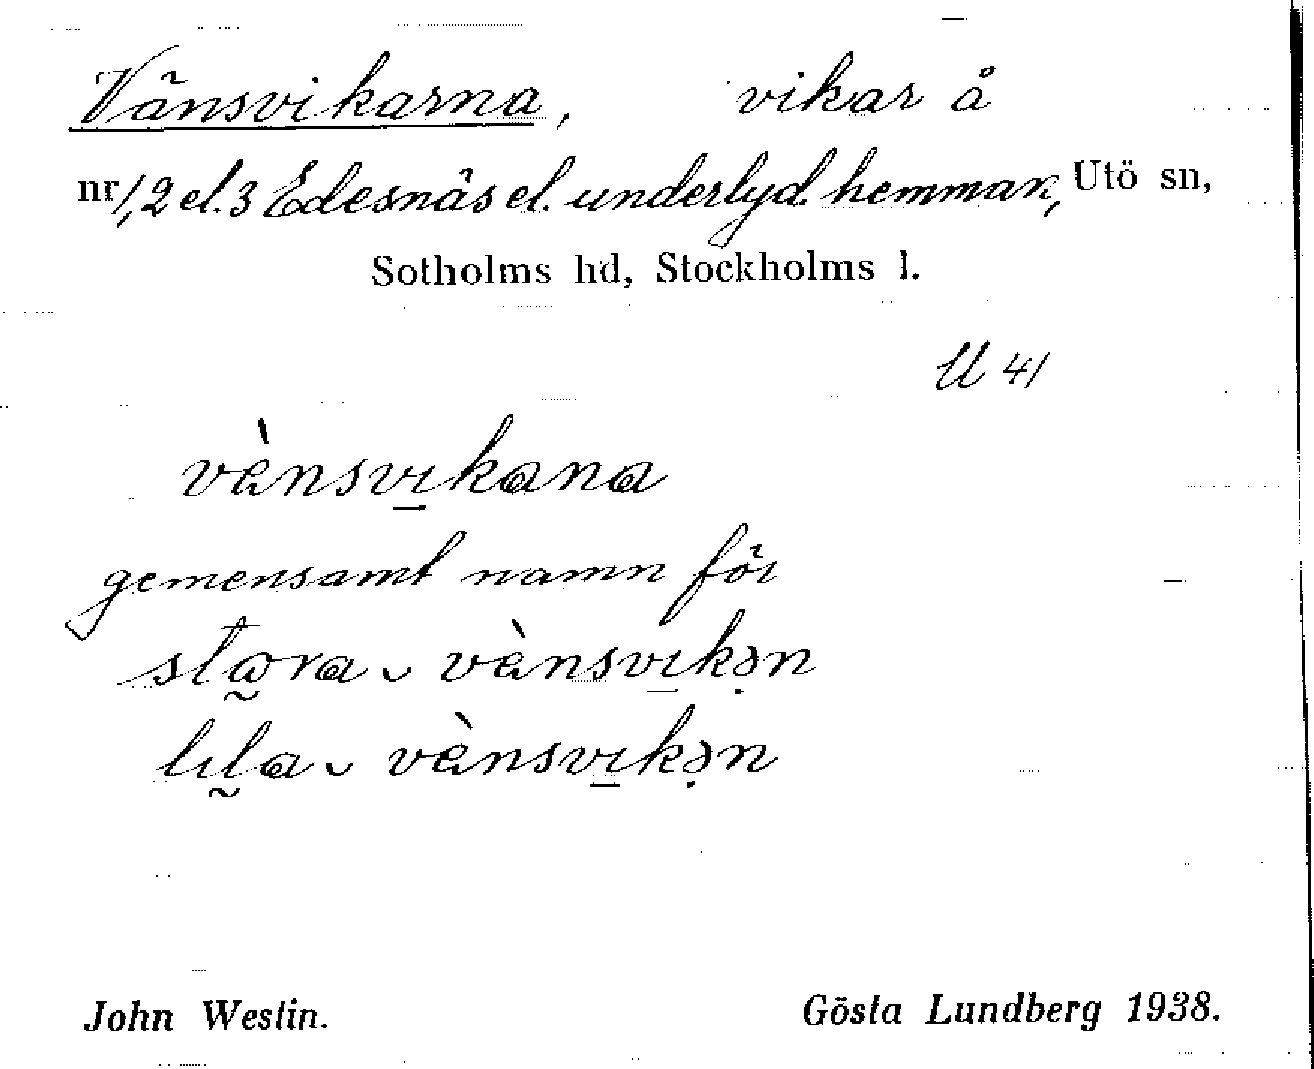 Vänsvikarna, vikar å
nr 1, 2 el. 3 Edesnäs el. underlyd. hemman, Utö sn,
Sotholms hd, Stockholms l.
U 41
vànsvıkana
gemensamt namn för
stɷra ᴗ vànsvıkən
lıla ᴗ vànsvıkən
John Westin. Gösta Lundberg 1938.